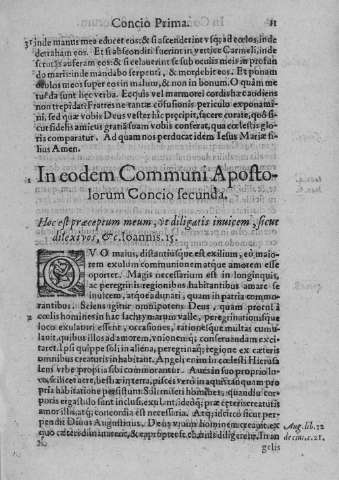 Concio Prima. 11
inde manus mea educet eos: & si ascenderint vsq; ad cœlos, inde
detraham eos. Et si absconditi fuerint in vertice Carmeli, inde
scrutãs auferam eos: & si celauerint se sub oculis meis in profun
do maris: inde mandabo serpenti, & mordebit eos. Et ponam
oculos meos super eos in malum, & non in bonum. O quàm me
tu da sunt hęc verba. Ecquis vel marmorei cordis hæc audiens
non trepidat? Fratres ne tantæ cõfusionis periculo exponami
ni, sed quæ vobis Deus vester hic pręcipit, facere curate, quò si
cut fidelis amicus gratiã suam vobis conferat, qua cœlestis glo
ria comparatur. Ad quam nos perducat idem Iesus Mariæ fi
lius Amen.
In eodem Communi Aposto-
lorum Concio secunda.
Hoc est præceptum meum, vt diligatis inuicem, sicut
dilexi vos, &c. Ioannis. 15.
QVO maius, distantiúsque est exilium, eò maio
rem exulum communionem atque amorem esse
oportet. Magis necessarium est in longinquis,
ac peregrinis regionibus habitantibus amare se
inuicem, atque adunati, quam in patria commo-
rantibus. Sciens igitur omnipotens Deus, quam procul à
cœlis homines in hac lachrymarum valle, peregrinationisque
loco exulaturi essent, occasiones, rationésque multas cumu
lauit, quibus illos ad amorem, vnionemq; conseruandam exci
taret. Ipsi quippe soli in aliena, peregrinaq; regione ex cæteris
omnibus creaturis inhabitant. Angeli enim in cœlesti Hierusa
lem vrbe propria sibi commorantur. Aues in suo proprio lo-
co, scilicet aere, bestiæ in terra, pisces verò in aquis tãquam pro
pria habitatione persistunt. Soli miseri homines, quandiu cor-
poris ergastulo sunt inclusi, exulant, dẽdq; præ cæteris creaturis
amor illis, atq; concordia est necessaria. Atq; id circo sicut per-
pendit Diuus Augustinus, Deus vnum hominem creauit, ex
quo cæteri diminuerent, & eapropter se charius diligerent. In an
gelis
Aug. lib. 12
de ciui. c. 21.